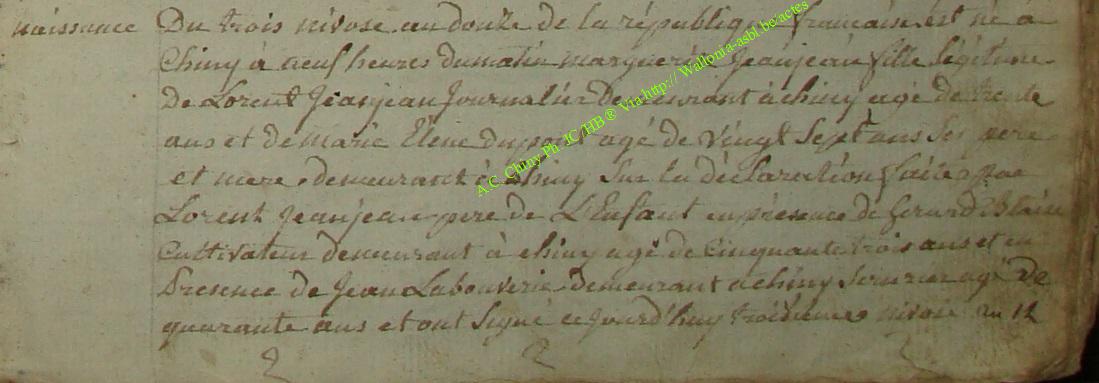 naissance Du trois nivose an douze de la république francaise est né a
Chiny à neuf heures du matin marguerite Jeanjean fille légitime
De Lorent Jeanjean Journalier Demeurant à chiny agé de trente
ans et de marie Elene dupont agé de vingt Sept ans Ses pere
et mere demeurant à Chiny Sur la déclaration faite par
Lorent Jeanjean pere de L'Enfant en présence de Gerard
Cultivateur demeurant à chiny agé de Cinquante trois ans et en
Presence de Jean Labouverie demeurant a chiny Serurier agé de
quarante ans et ont Signé ce Jourd'huy troisieme nivose an 12
A.C. Chiny Ph JC/HB ® Via http:// Wallonia-asbl.be/actes